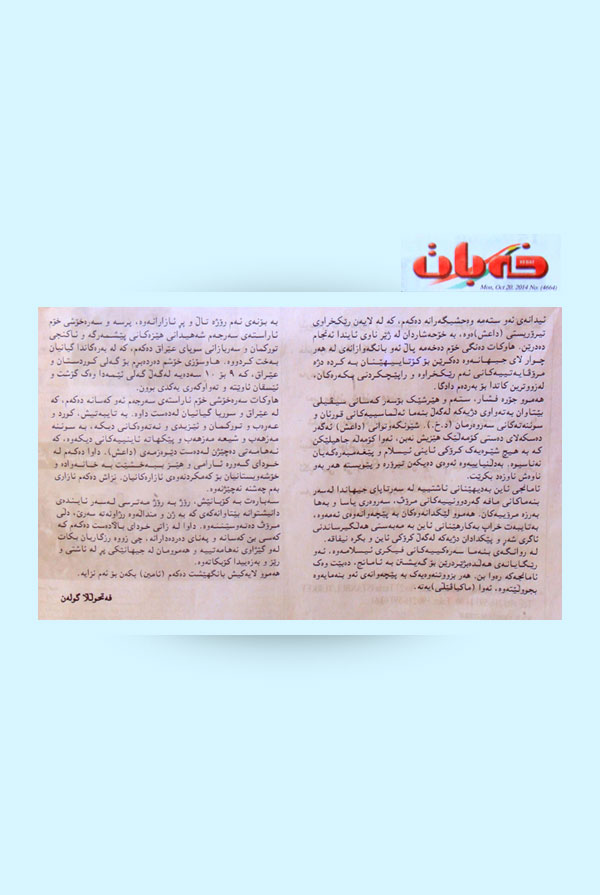 خەبات
XEBAT
Mon, Oct 20, 2014 No. (4664)
بە بۆنەی ئەم رۆژە تاڵ و پڕ ئازارانەوە، پرسە و سەرەخۆشی خۆم
ئاراستەی سەرجەم شەهیدانی هێزەکانی پێشمەرگە و ناکنجی
تورکمان و سەربازانی سوپای عێراق دەکەم، کە لە بەرەکاندا گیانیان
بەخت کردووە. هاوسۆزی خۆشم دەردەبڕم بۆ گەلی کوردستان و
عێراق، کە ٩ بۆ ١٠ سەدەیە لەگەڵ گەلی ئێمەدا وەک گۆشت و
ئێسقان ئاوێتە و تەواوکەری یەکدی بوون.
هاوکات سەرەخۆشی خۆم ئاراستەی سەرجەم ئەو کەسانە دەکەم، کە
لە عێراق و سوریا گیانیان لەدەست داوە. بە تایبەتیش، کورد و
عەرەب و تورکمان و ئێزیدی و نەتەوەکانی دیکە، بە سوننە
مەزهەب و شیعە مەزهەب و پێکهاتە ئاینییەکانی دیکەوە، کە
نەهامەتی دەچێژن لەدەست دێوەزمەی (داعش). داوا دەکەم لە
خودای گەورە ئارامی و هێز ببەخشێت بە خانەوادە و
خۆشەویستانیان بۆ کەمکردنەوەی ئازارەکانیان. نزاش دەکەم ئازاری
بەم چەشنە نەچێژنەوە.
سەبارەت بە کۆبانێش، رۆژ بە رۆژ مەترسی لەسەر ئایندەی
دانیشتوانە بێتاوانەکەی کە بە ژن و منداڵەوە رژاونەتە سەرێ، دڵی
مرۆڤ دەتەوسێننەوە. داوا لە زاتی خودای باڵادەست دەکەم کە
کەسی بێ کەسانە و پەنای دەردەدارانە، چی زووە رزگاریان بکات
لەو گێژاوی نەهامەتییە و هەموومان لە جیهانێکی پڕ لە ئاشتی و
رێز و بەزەییدا کۆبکاتەوە.
هەموو لایەکیش بانگهێشت دەکەم (ئامین) بکەن بۆ ئەم نزایە.
فەتحوڵڵا گولەن
ئیدانەی ئەو ستەمە وەحشیگەرانە دەکەم، کە لە لایەن رێکخراوی
تیرۆریستی (داعش)ەوە، بە خۆحەشاردان لە ژێر ناوی ئایندا ئەنجام
دەدرێن. هاوکات دەنگی خۆم دەخەمە پاڵ ئەو بانگەوازانەی لە هەر
چوار لای جیهانەوە دەکرێن بۆ کۆتاییهێنان بە کردە دژە
مرۆڤایەتییەکانی ئەم رێکخراوە و راپێچکردنی بکەرەکان،
لەزووترین کاتدا بۆ بەردەم دادگا.
هەموو جۆرە فشار، ستەم و هێرشێک بۆسەر کەسانی سیڤیلی
بێتاوان بەتەواوی دژیەکە لەگەڵ بنەما ئەڵماسییەکانی قورئان و
سوننەتەکانی سەروەرمان (د.خ.). شوێنکەوتوانی (داعش) ئەگەر
دەسکەلای دەستی کۆمەڵێک هێزیش نەبن، ئەوا کۆمەڵە جاهیلێکن
کە بە هیچ شێوەیەک کرۆکی ئاینی ئیسلام و پێغەمبەرەکەیان
نەناسیوە. بەدڵنیاییەوە ئەوەی دەیکەن تیرۆرە و پێویستە هەر بەو
ناوەش ناوزەد بکرێت.
ئامانجی ئاین بەدیهێنانی ئاشتییە لە سەرتاپای جیهاندا لەسەر
بنەماکانی مافە گەردوونییەکانی مرۆڤ، سەروەری یاسا و بەها
بەرزە مرۆییەکان. هەموو لێکدانەوەکان بە پێچەوانەوەی ئەمە،
بەتایبەت خراپ بەکارهێنانی ئاین بە مەبەستی هەڵگیرساندنی
ئاگری شەڕ و پێکدادان دژیەکە لەگەڵ کرۆکی ئاین و بگرە نیفاقە.
لە روانگەی بنەما سەرەکییەکانی فیکری ئیسلامەوە، ئەو
رێگایانەی هەڵدەبژێردرێن بۆ گەیشتن بە ئامانج، دەبێت وەک
ئامانجەکە رەوا بن. هەر بزووتنەوەیەک بە پێچەوانەی ئەو بنەمایەوە
بجووڵێتەوە، ئەوا (ماکیاڤێلی)یەتە.